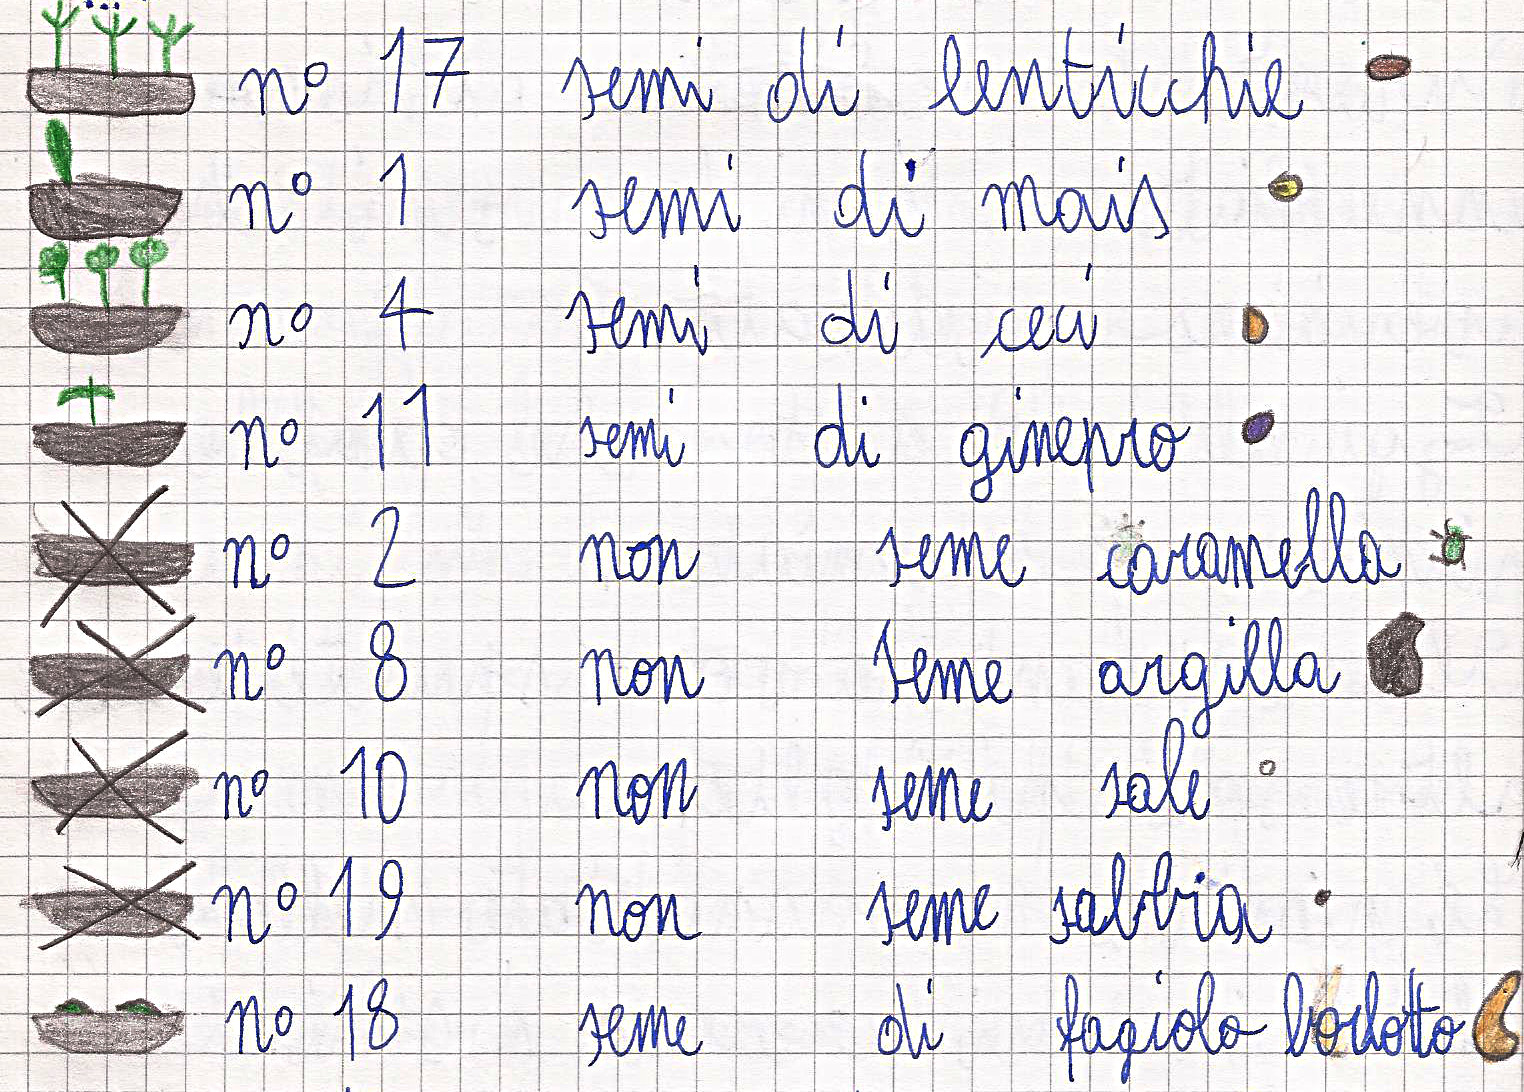 n° 17 semi di lenticchie
n° 1 semi di mais
n° 4 semi di ceci
n° 11 semi di ginepro
n° 2 non seme caramella
n° 8 non seme argilla
n° 10 non seme sale
n° 19 non seme sabbia
n° 18 seme di fagiolo borlotto